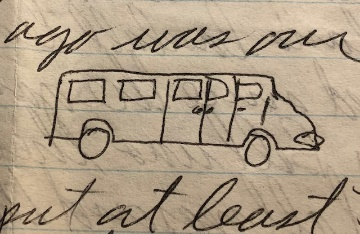 ago was our
put at least